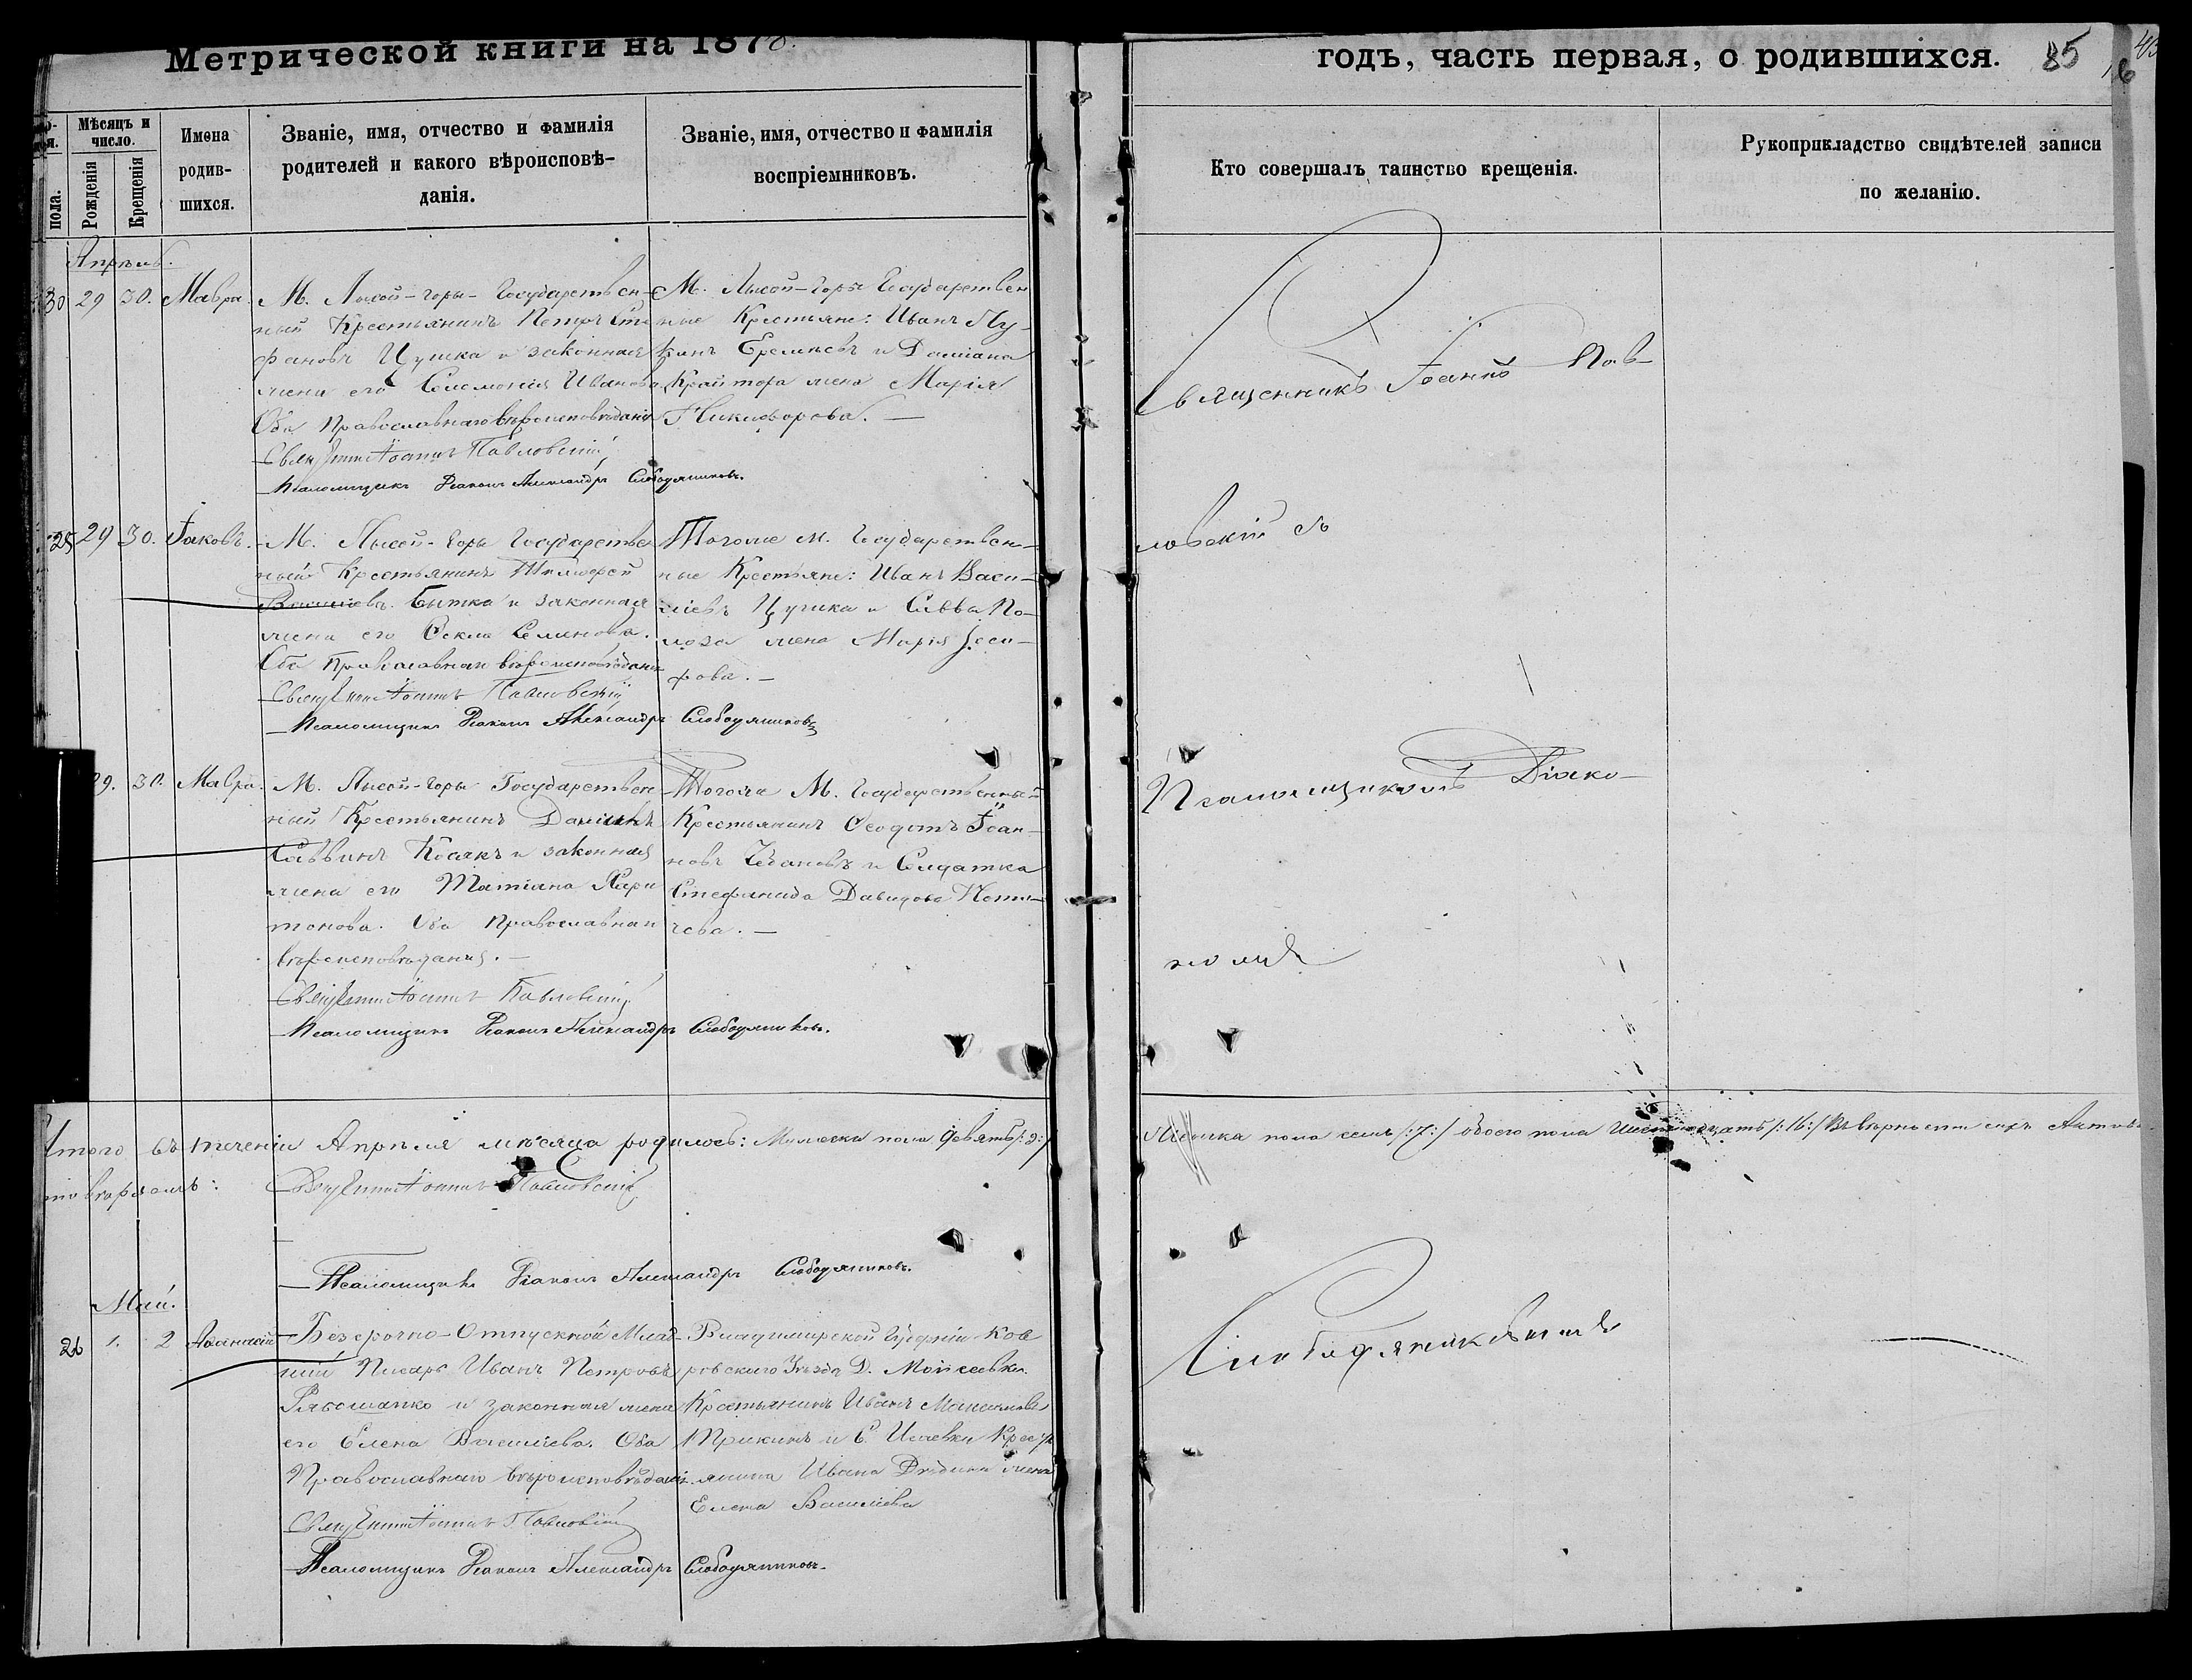 Метрической книги на 1878.
годъ, часть первая, о родившихся.
85
Мѣсяцъ и число.
пола.
Рожденія
Крещенія
Имена родив-
шихся.
Званіе, имя, отчество и фамилія
родителей и какого вѣроисповѣ-
данія.
Званіе, имя, отчество и фамилія
воспріемниковъ.
Кто совершалъ таинство крещенія.
Рукоприкладство свидѣтелей записи
по желанію.
Апрѣль.
30 29 30. Мавра.
М. Лысой-горы Государствен-
ный Крестьянинъ Петръ Сте
фановъ Цушка и законная
жена его Соломонія Иванова
Оба Православнаго вѣроисповѣданія
Священникъ Іоаннъ Павловскій
Псаломщикъ Діаконъ Александръ Слободяниковъ.
М. Лысой-Горы Государствен
ные Крестьяне: Иванъ Лу-
кинъ Еремѣевъ и Даміана
жена Марія
Никифорова. —
Священникъ Іоаннъ Пав-
25 29 30. Іаковъ.
М. Лысой-Горы Государствен
ный Крестьянинъ Тимофей
Василіевъ Бытка и законная
жена его Ѳекла Семенова.
Оба Православнаго вѣроисповѣданія
Священникъ Іоаннъ Павловскій
Псаломщикъ Діаконъ Александръ Слободяниковъ
Тогоже М. Государствен-
ные Крестьяне: Иванъ Васи-
ліевъ Цушка и Саввы По-
лоза жена Марія
ловскій съ
29. 30. Мавра.
М. Лысой-Горы Государствен
ный Крестьянинъ Даміанъ
Саввинъ Косякъ и законная
жена его Татіана Хари
тонова. Оба Православнаго
вѣроисповѣданія. —
Священникъ Іоаннъ Павловскій
Псаломщикъ Діаконъ Александръ Слободяниковъ.
Тогоже М. Государственный
Крестьянинъ Ѳеодотъ Іоан-
новъ Чебановъ и Солдатка
Стефанида Давидова
Псаломщикомъ Діако-
номъ
Итого въ теченіи Апрѣля мѣсяца родилось: Мужеска пола девять /:9:/
Женска пола семь /:7:/ обоего пола шестнадцать /:16:/ Въ вѣрности сихъ Актовъ
Священникъ Іоаннъ Павловскій
Псаломщикъ Діаконъ Александръ Слободяниковъ.
Май.
26 1. 2 Аѳанасій
Безсрочно-Отпускной Млад-
шій Писарь Иванъ Петровъ
Рябошапко и законная жена
его Елена Василіева. Оба
Православнаго вѣроисповѣданія
Священникъ Іоаннъ Павловскій
Псаломщикъ Діаконъ Александръ Слободяниковъ.
Владимирской Губерніи Ков
ровскаго Уѣзда Д. Мойсеевки
Крестьянинъ Иванъ
и С. Исаевки Кресть
янина Ивана жена
Елена Василіева
Слободяниковымъ